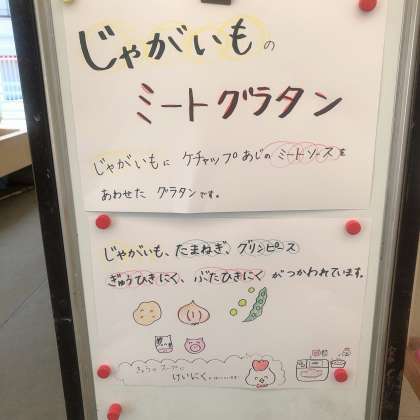 じゃがいもの
ミートグラタン
じゃがいもに ケチャップあじの ミートソースを
あわせた グラタンです。
じゃがいも、たまねぎ、グリンピース
ぎゅうひきにく、ぶたひきにく がつかわれています。
きょうの スープに
けいにく